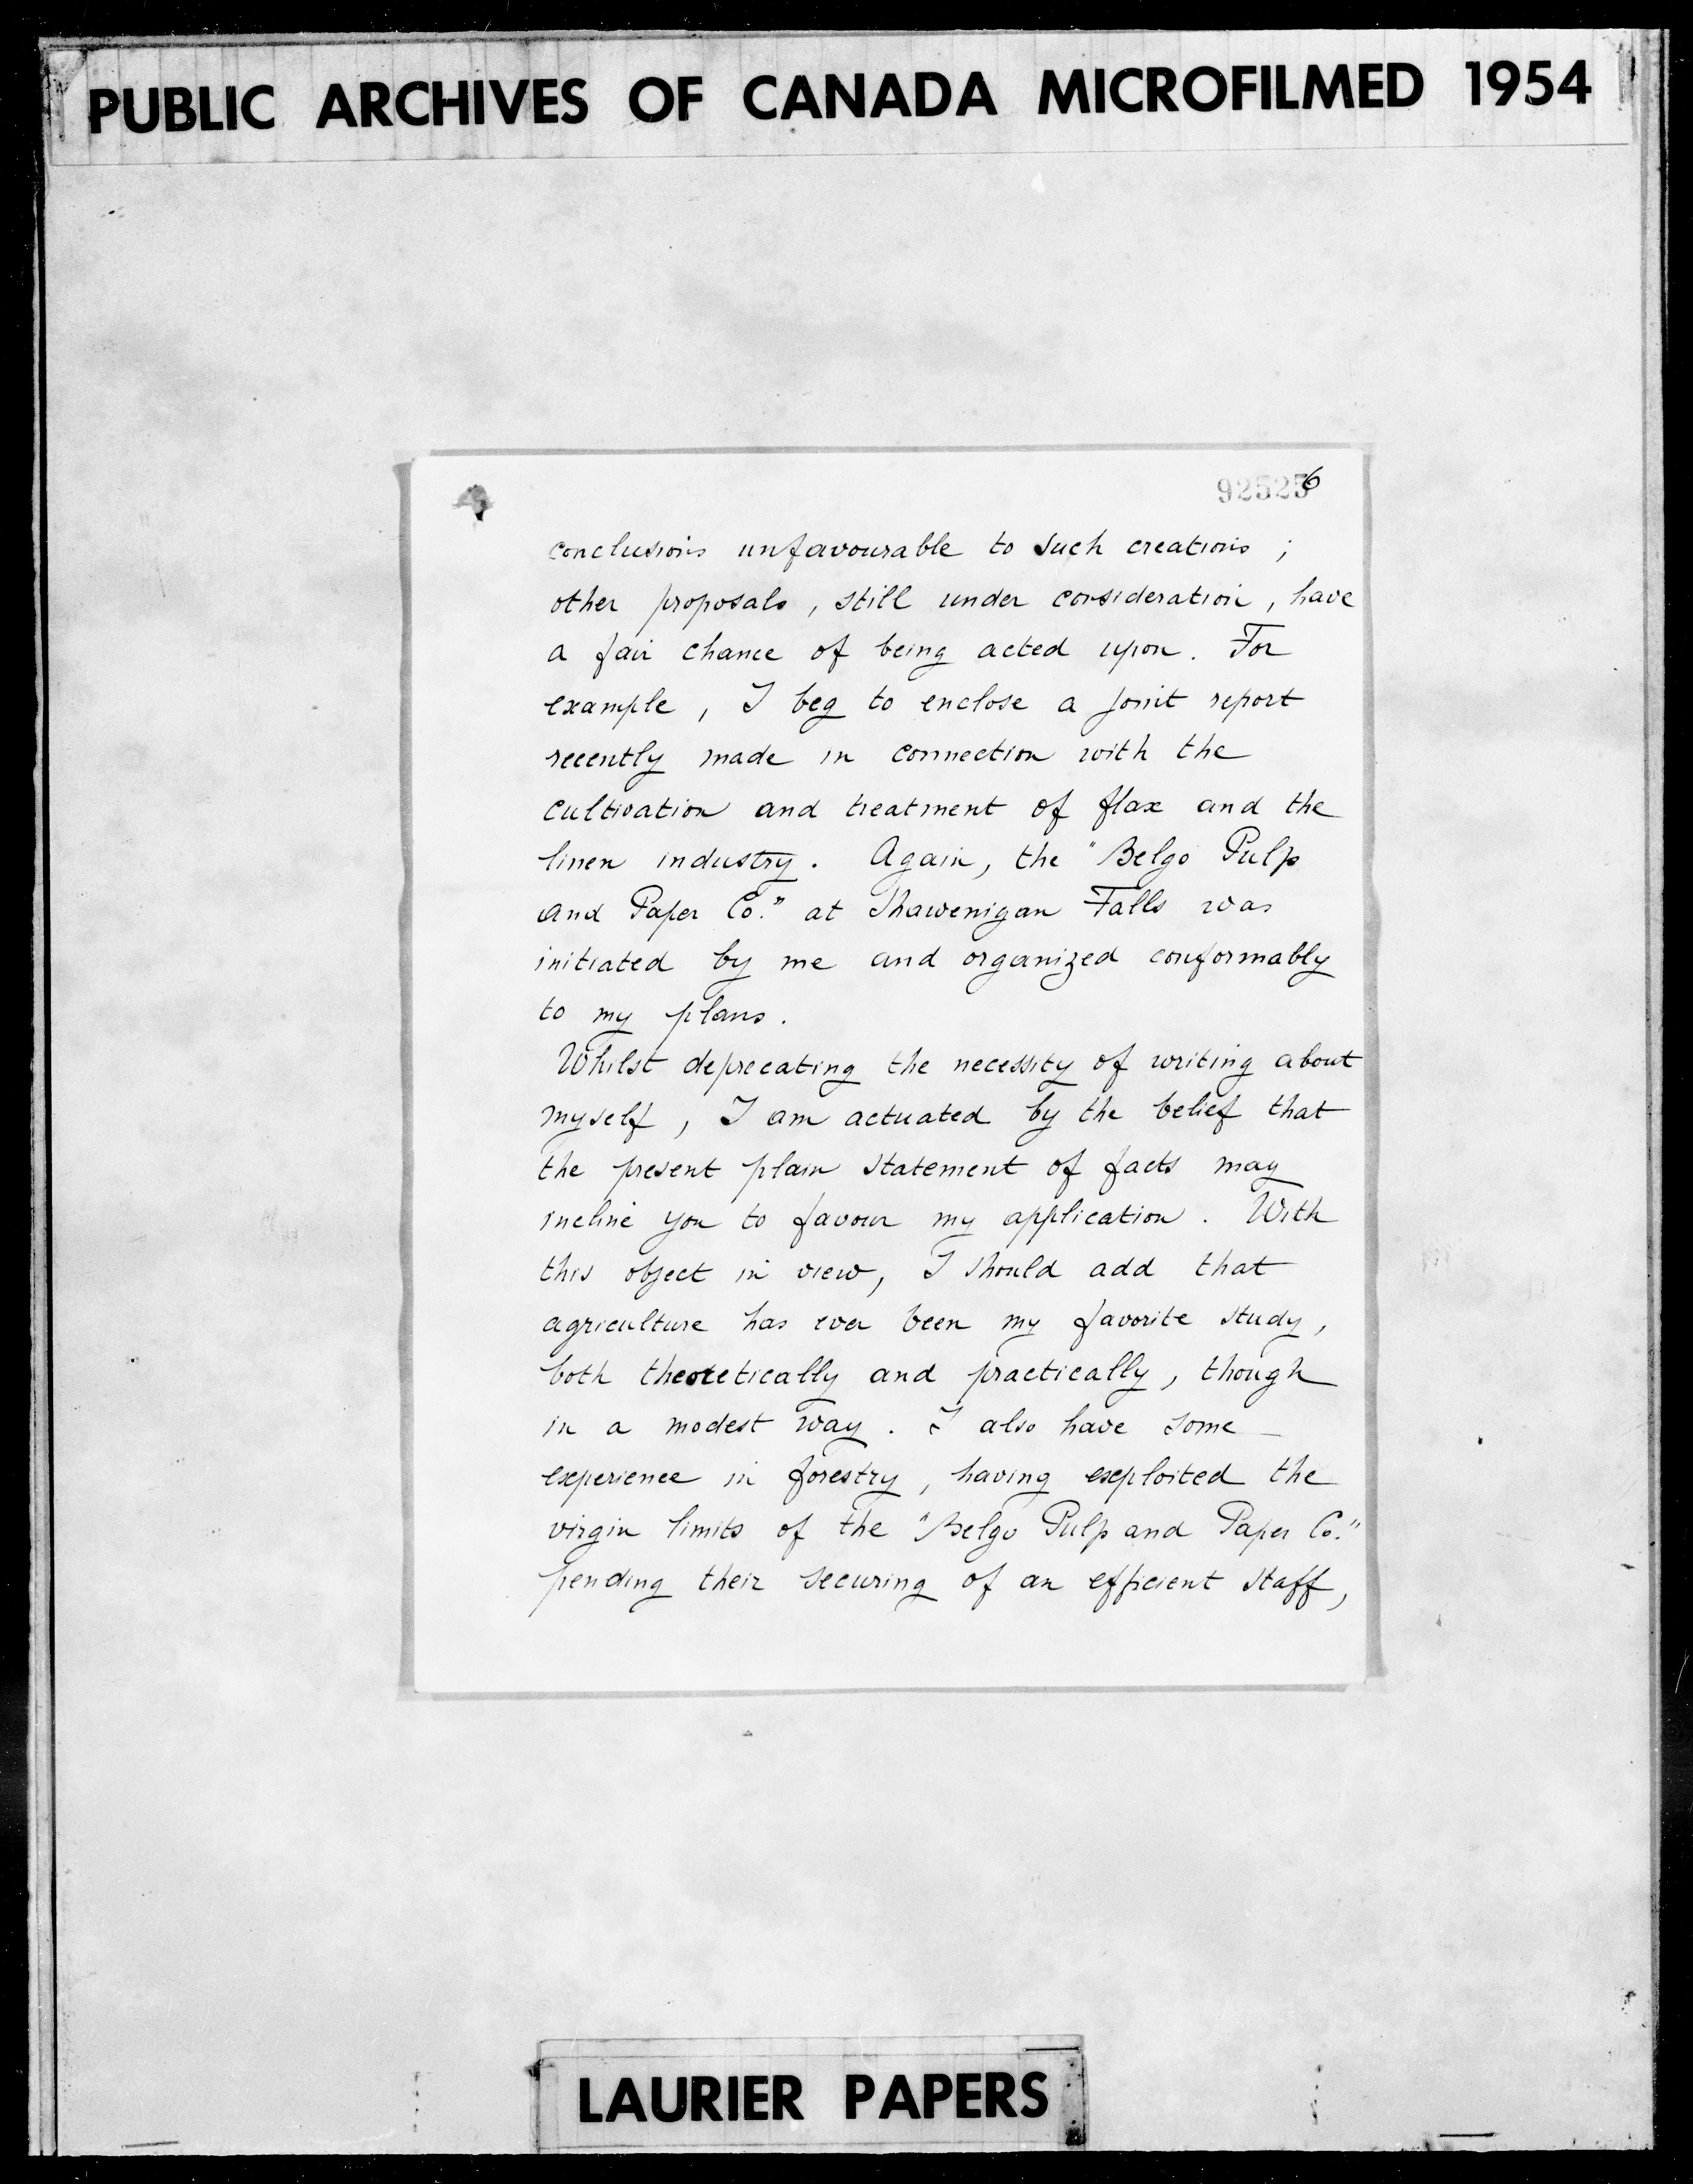 PUBLIC ARCHIVES OF CANADA MICROFILMED 1954
92526
conclusions unfavourable to such creations ;
other proposals , still under consideration , have
a fair chance of being acted upon . For
example , I beg to enclose a joint report
recently made in connection with the
cultivation and treatment of flax and the
linen industry . Again, the "Belgo Pulp
and Paper Co." at Shawenigan Falls was
initiated by me and organized conformably
to my plans .
Whilst deprecating the necessity of writing about
myself , I am actuated by the belief that
the present plain statement of facts may
incline you to favour my application . With
this object in view, I should add that
agriculture has ever been my favorite study ,
both theoretically and practically , though
in a modest way . I also have some
experience in forestry , having exploited the
virgin limits of the "Belgo Pulp and Paper Co."
pending their securing of an efficient staff ,
LAURIER PAPERS